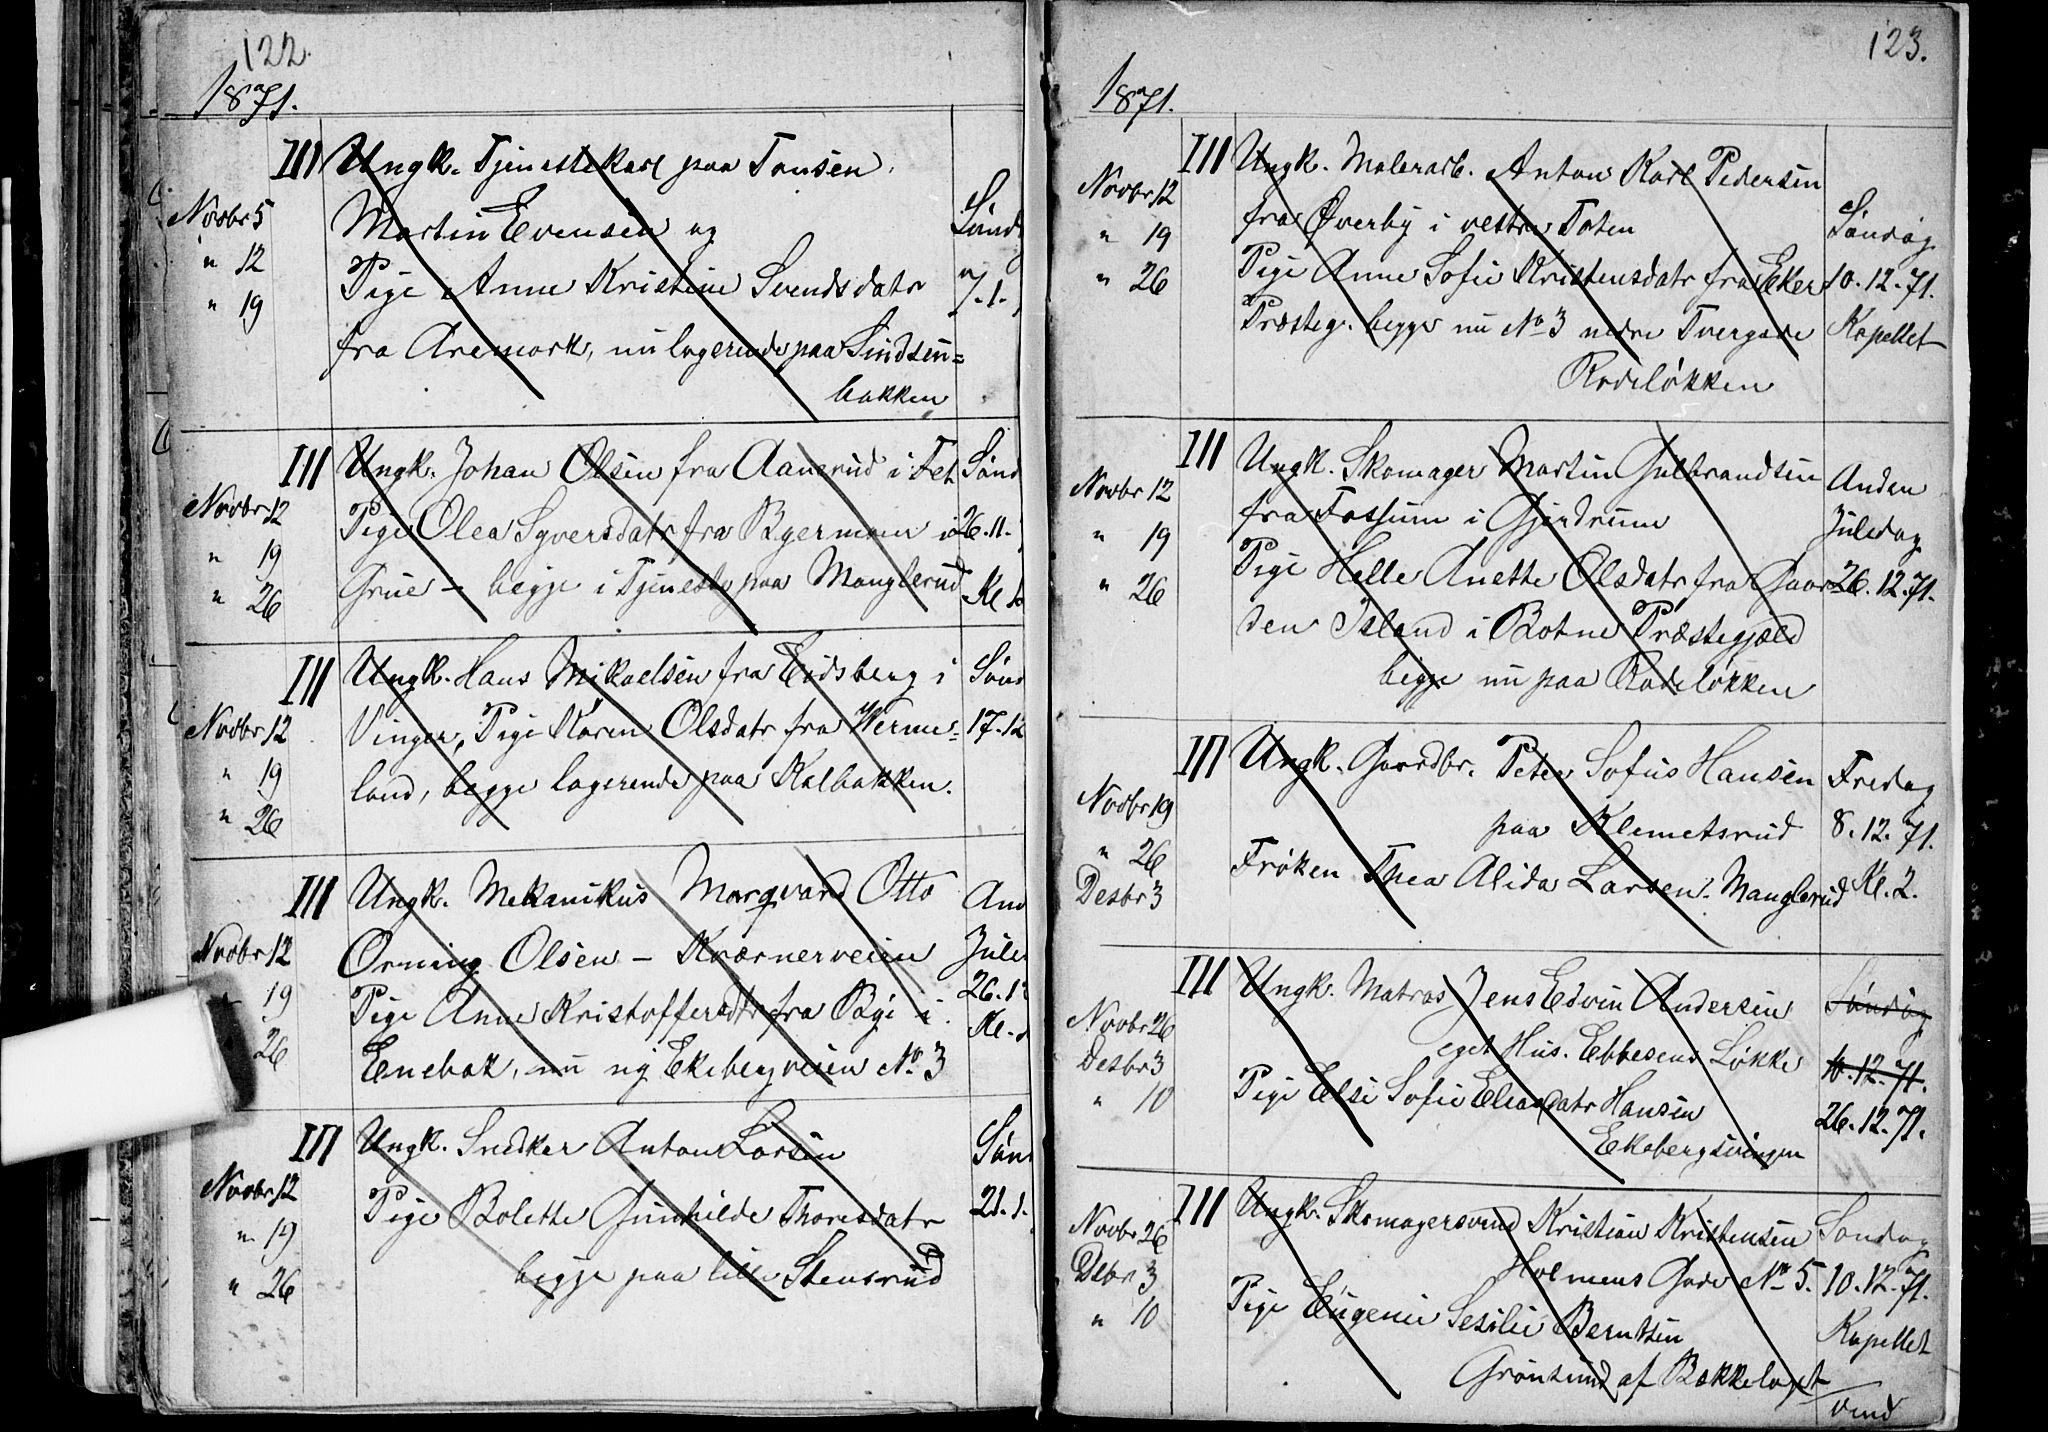 122.
1871.
III Ungk. Tjenestekarl paa Tonsen,
Novbr 5 Martin Evensen og Sønd
" 12 Pige Anne Kristine Svendsdatr 7.1.
" 19 fra Aremark, nu logerende paa Sindsen=
bakken
III Ungk. Johan Olsen fra Aanerud i Fet Sønd
Novbr 12 Pige Olea Syversdatr fra Bjermoen i 26.11.
" 19 Grue – begge i Tjeneste paa Manglerud Kl
" 26
III Ungk. Hans Mikaelsen fra Eidsberg i Sønd
Novbr 12 Vinger, Pige Karen Olsdatr fra Werme= 17.12
" 19 land, begge logerende paa Kalbakken.
" 26
III Ungk. Mekanikus Marqvard Otto And
Novbr 12 Orning Olsen – Kværnerveien Jule
19 Pige Anne Kristoffersdtr fra Bgi i 26.12
26 Enebak, nu ny Ekebergveien No 3 Kl.
III Ungk. Snedker Anton Larsen Sønd
Novbr 12 Pige Bolette Gunhilde Thorsdatr 21.1.
" 19 begge paa lille Stensrud
" 26
123.
1871.
III Ungk. Malerarb. Anton Karl Pedersen
Novbr 12 fra Øverby i vestre Toten Søndag
" 19 Pige Anne Sofie Kristensdatr fra Eker 10.12.71.
" 26 Præsteg. begge nu No 3 nedre Tvergade Kapellet
Rodeløkken
III Ungk. Skomager Martin Gulbrandsen Anden
Novbr 12 fra Fossum i Gjerdrum Juledag
" 19 Pige Helle Anette Olsdatr fra Gaar= 26.12.71.
" 26 den Island i Botne Præstegjæld
begge nu paa Rodeløkken
III Ungk. Gaardbr. Peter Sofus Hansen Fredag
Novbr 19 paa Klemetsrud 8.12.71.
" 26 Frøken Thea Alida Larsen. Manglerud Kl. 2.
Desbr 3
III Ungk. Matros Jens Edvin Andersen Søndag
Novbr 26 eget Hus. Ebbesens Løkke 10.12.71.
Desbr 3 Pige Else Sofie Eleasdatr Hansen 26.12.71.
" 10 Ekebergsvingen
III Ungk. Skomagersvend Kristian Kristensen Søndag
Novbr 26 Holmens Gade No 5. 10.12.71.
Debr 3 Pige Eugenie Sesilie Berntsen Kapellet
" 10 Grønsund af Bækkelaget
vend